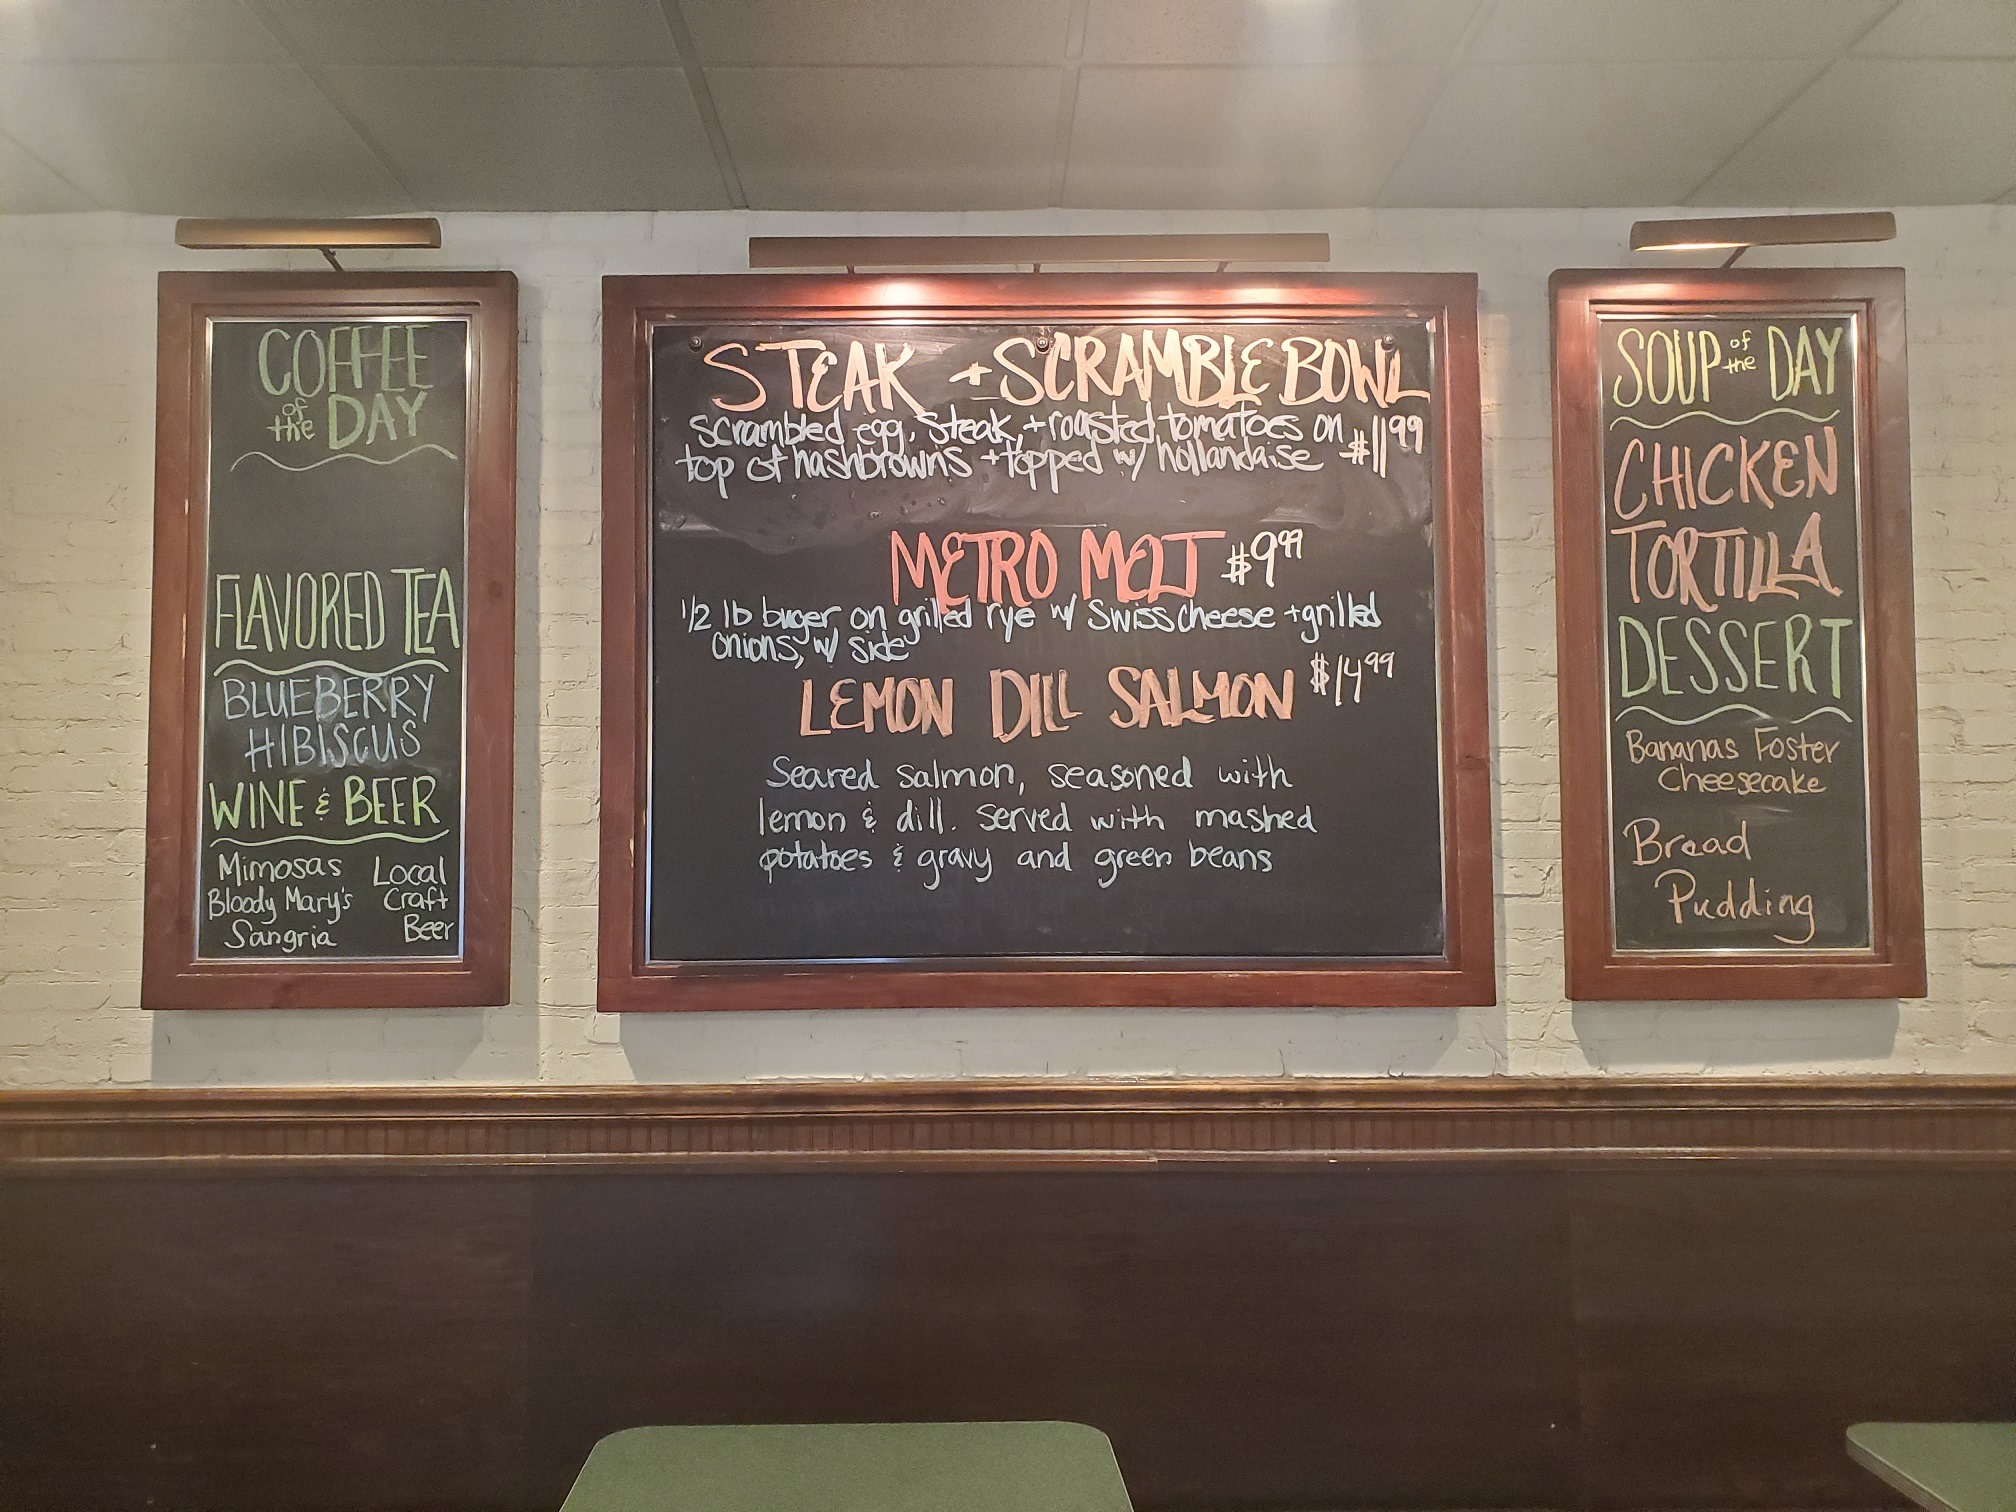 COFFEE
of the DAY
FLAVORED TEA
BLUEBERRY
HIBISCUS
WINE & BEER
Mimosas
Bloody Mary's
Sangria
Local
Craft
Beer
STEAK + SCRAMBLE BOWL
scrambled egg, steak, + roasted tomatoes on
top of hashbrowns + topped w/ hollandaise $11 99
METRO MELT $9 99
1/2 lb buger on grilled rye w/ Swiss cheese + grilled
onions, w/ side
LEMON DILL SALMON $14 99
Seared salmon, seasoned with
lemon & dill. served with mashed
potatoes & gravy and green beans
SOUP of the DAY
CHICKEN
TORTILLA
DESSERT
Bananas Foster
Cheesecake
Bread
Pudding